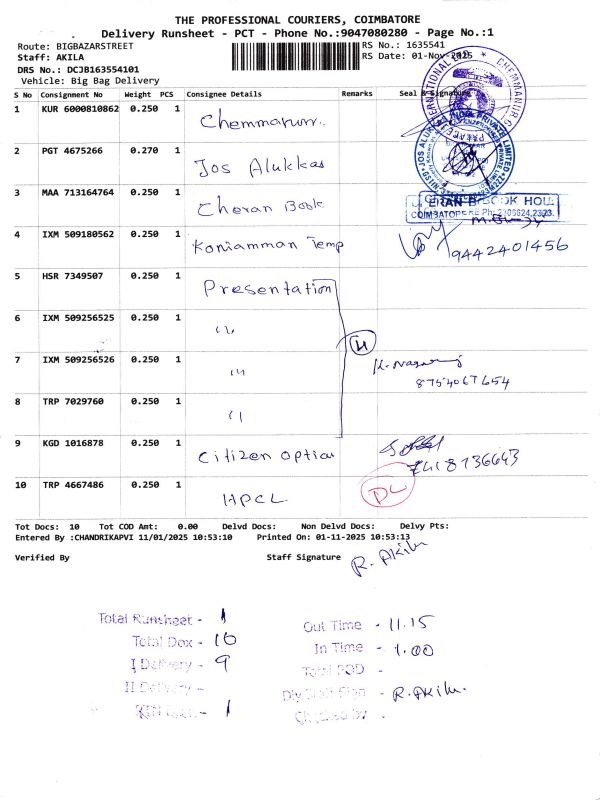 THE PROFESSIONAL COURIERS, COIMBATORE
Delivery Runsheet - PCT - Phone No.:9047080280 - Page No.:1
Route: BIGBAZARSTREET
RS No.: 1635541
Staff: AKILA
RS Date: 01-Nov-2025
DRS No.: DCJB163554101
Vehicle: Big Bag Delivery
S No Consignment No Weight PCS Consignee Details Remarks Seal & Signature
1 KUR 6000810862 0.250 1 Chemmanur.
2 PGT 4675266 0.270 1 Jos Alukkas
3 MAA 713164764 0.250 1 Cheran Book
4 IXM 509180562 0.250 1 Koniamman Temp 9442401456
5 HSR 7349507 0.250 1 Presentation
6 IXM 509256525 0.250 1 ''
4
7 IXM 509256526 0.250 1 '' 8754067654
8 TRP 7029760 0.250 1 ''
9 KGD 1016878 0.250 1 Citizen Optical 7418736643
10 TRP 4667486 0.250 1 HPCL DL
CHEMMANUR
JOS ALUKKAS
PRIVATE LIMITED
BOOK HOU
COIMBATORE
Tot Docs: 10 Tot COD Amt: 0.00 Delvd Docs: Non Delvd Docs: Delvy Pts:
Entered By :CHANDRIKAPVI 11/01/2025 10:53:10 Printed On: 01-11-2025 10:53:13
Verified By Staff Signature R. Akila
Total Runsheet - 1
Out Time - 11.15
Total Dox - 10
In Time - 1.00
I Delivery - 9
Total POD -
II Delivery -
R. Akila.
RTN - 1
Checked by -